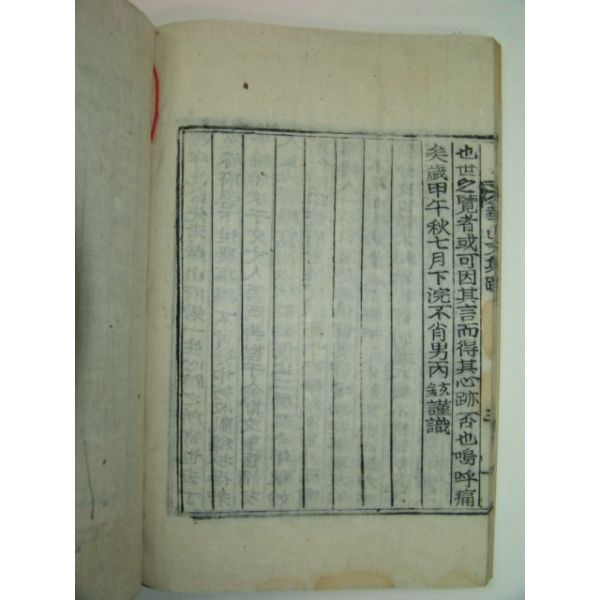 也世之覽者或可因其言而得其心跡否也嗚呼痛
矣歲甲午秋七月下浣不肖男丙鉉謹識
山文集跋
三